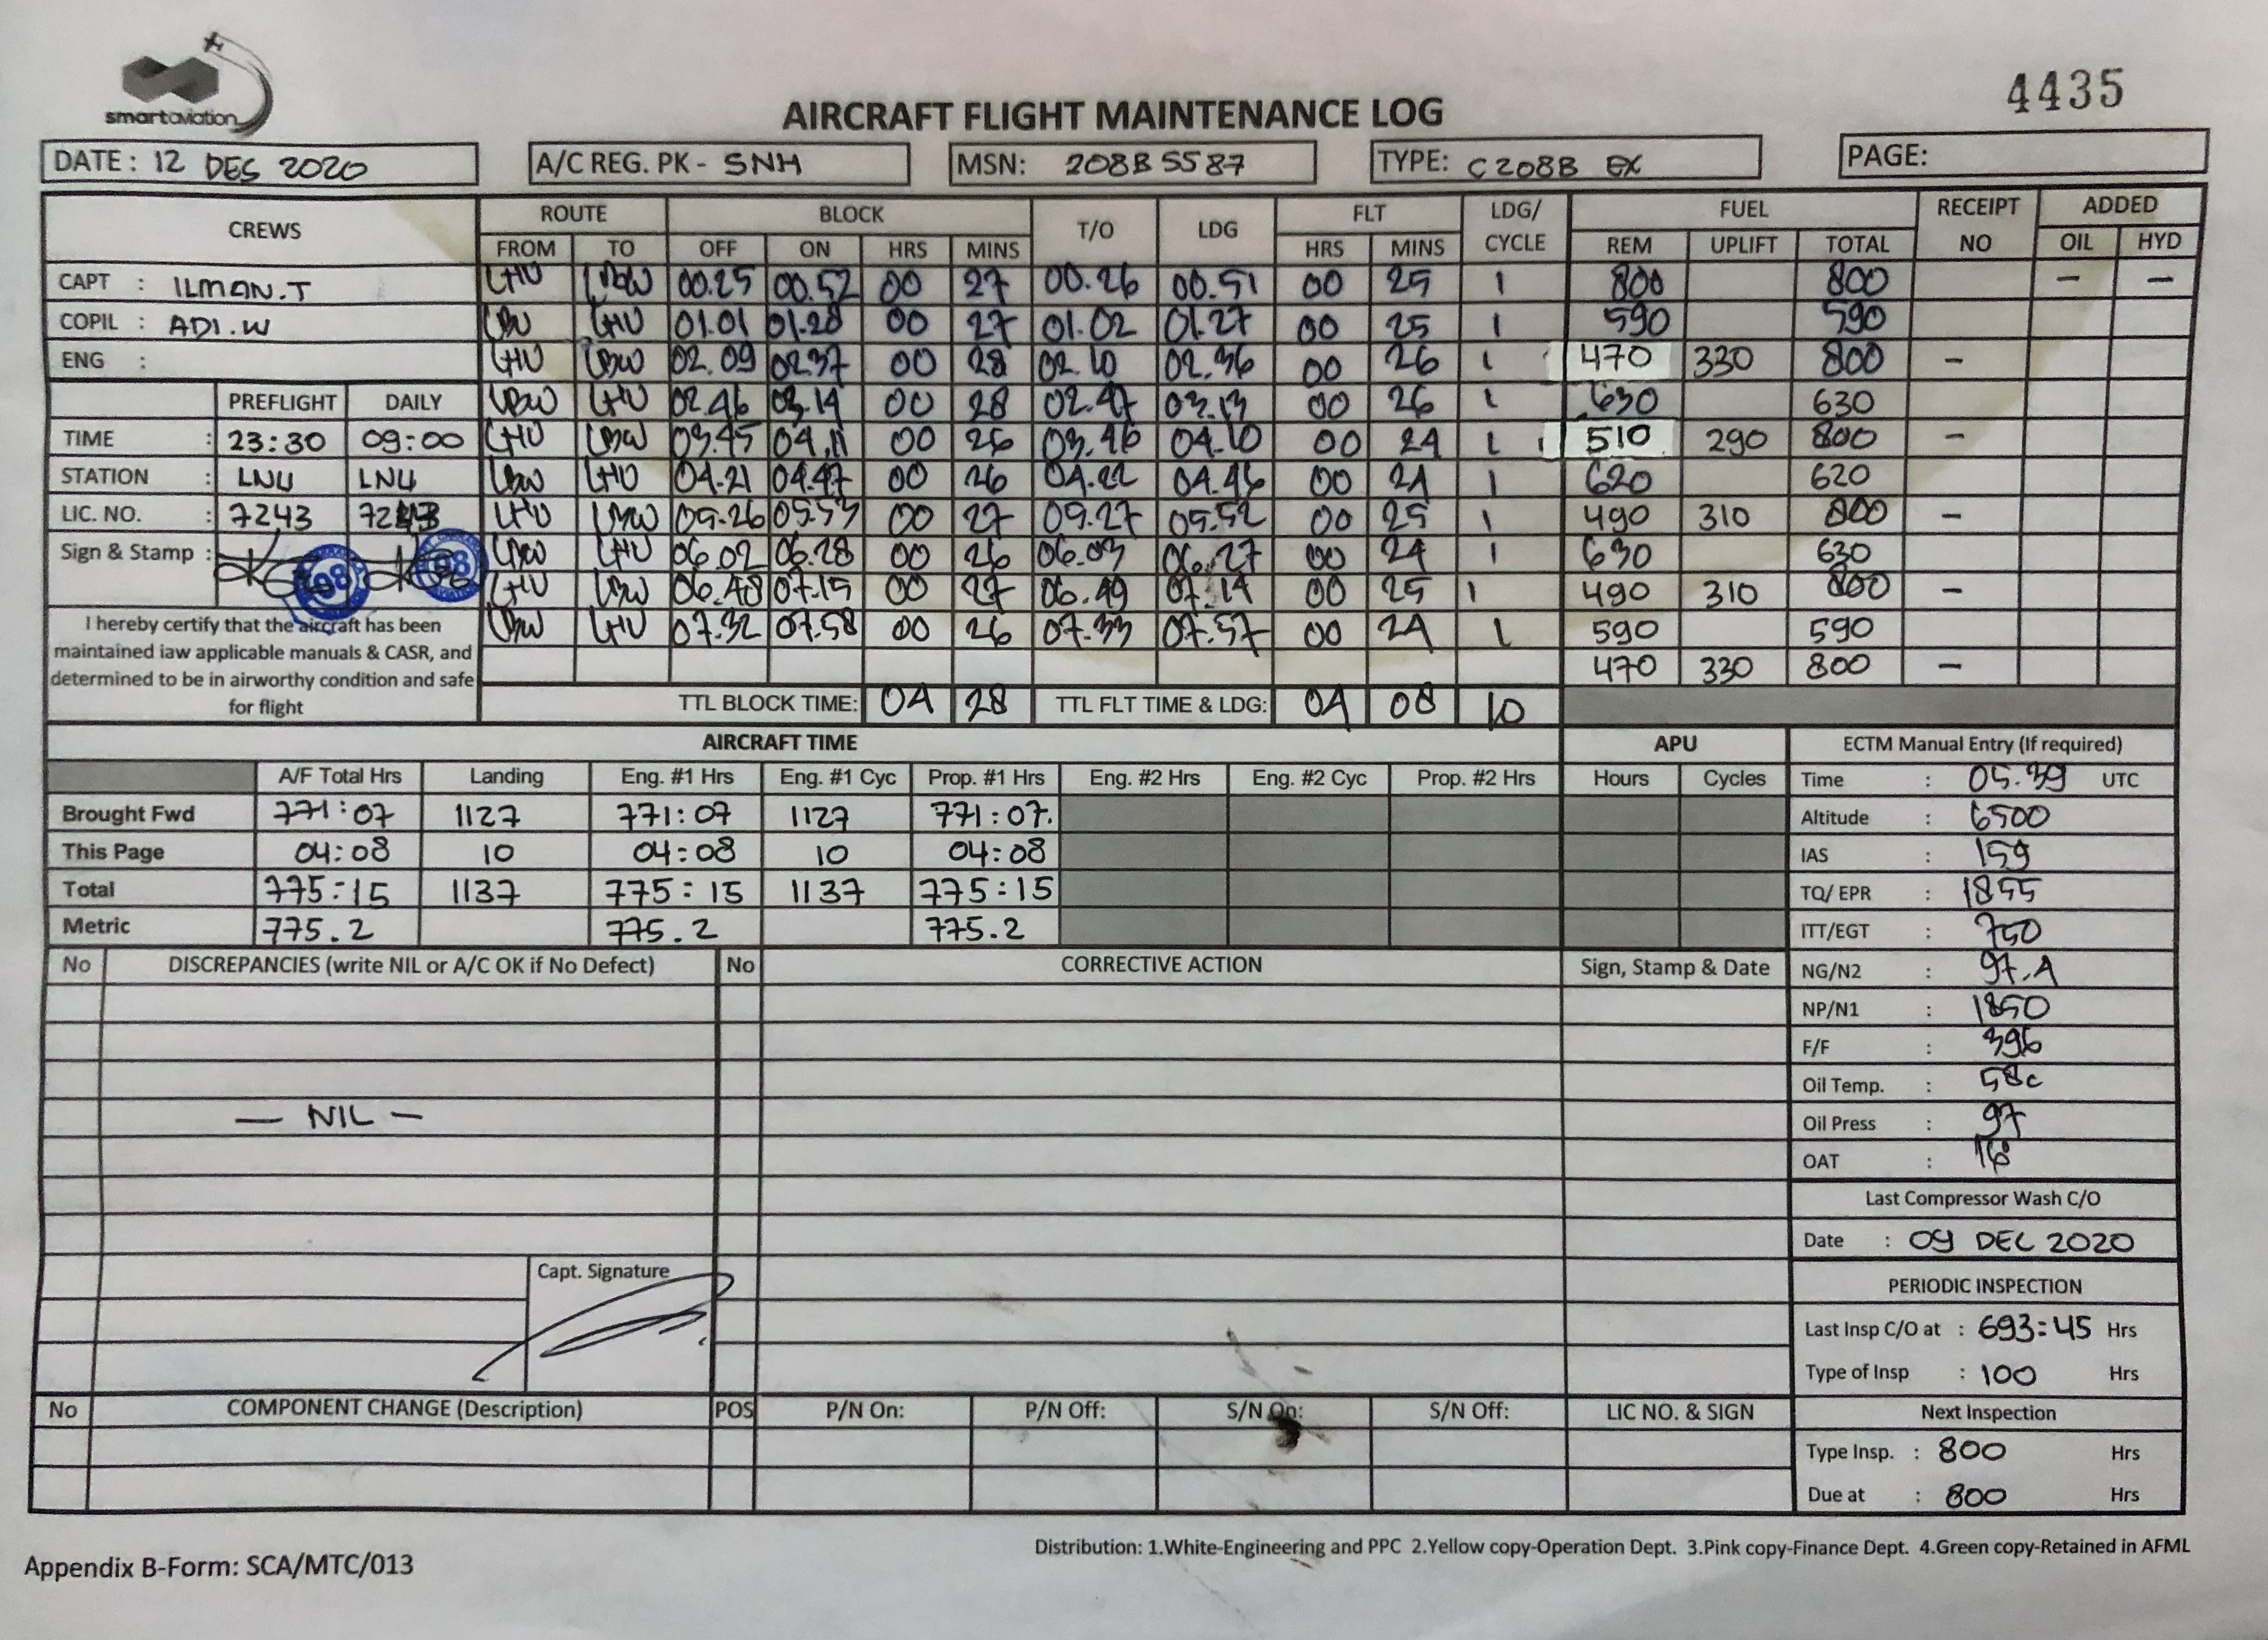 smartaviation
4435
AIRCRAFT FLIGHT MAINTENANCE LOG
DATE: 12 DES 2020 A/C REG. PK - SNH MSN: 208B5587 TYPE: C208B EX PAGE:
CREWS ROUTE BLOCK T/O LDG FLT LDG/ CYCLE FUEL RECEIPT NO ADDED
FROM TO OFF ON HRS MINS HRS MINS REM UPLIFT TOTAL OIL HYD
CAPT : ILMAN.T LHU LBW 00.25 00.52 00 27 00.26 00.51 00 25 1 800 800 — —
COPIL : ADI.W LBW LHU 01.01 01.28 00 27 01.02 01.27 00 25 1 590 590
ENG : LHU LBW 02.09 02.37 00 28 02.10 02.36 00 26 1 470 330 800 —
PREFLIGHT DAILY LBW LHU 02.46 03.14 00 28 02.47 03.13 00 26 1 630 630
TIME : 23:30 09:00 LHU LBW 03.45 04.11 00 26 03.46 04.10 00 24 1 510 290 800 —
STATION : LNU LNU LBW LHU 04.21 04.47 00 26 04.22 04.46 00 24 1 620 620
LIC. NO. : 7243 7243 LHU LBW 05.26 05.53 00 27 05.27 05.52 00 25 1 490 310 800 —
Sign & Stamp : 08 08 LBW LHU 06.02 06.28 00 26 06.03 06.27 00 24 1 630 630
LHU LBW 06.48 07.15 00 27 06.49 07.14 00 25 1 490 310 800 —
I hereby certify that the aircraft has been LBW LHU 07.32 07.58 00 26 07.33 07.57 00 24 1 590 590
maintained iaw applicable manuals & CASR, and
determined to be in airworthy condition and safe 470 330 800 —
for flight TTL BLOCK TIME: 04 28 TTL FLT TIME & LDG: 04 08 10
AIRCRAFT TIME APU ECTM Manual Entry (If required)
A/F Total Hrs Landing Eng. #1 Hrs Eng. #1 Cyc Prop. #1 Hrs Eng. #2 Hrs Eng. #2 Cyc Prop. #2 Hrs Hours Cycles Time : 05.39 UTC
Brought Fwd 771:07 1127 771:07 1127 771:07. Altitude : 6500
This Page 04:08 10 04:08 10 04:08 IAS : 159
Total 775:15 1137 775:15 1137 775:15 TQ/ EPR : 1855
Metric 775.2 775.2 775.2 ITT/EGT : 750
No DISCREPANCIES (write NIL or A/C OK if No Defect) No CORRECTIVE ACTION Sign, Stamp & Date NG/N2 : 97.4
NP/N1 : 1850
F/F : 396
Oil Temp. : 58c
— NIL — Oil Press : 97
OAT :
Last Compressor Wash C/O
Date : 09 DEC 2020
Capt. Signature
PERIODIC INSPECTION
Last Insp C/O at : 693:45 Hrs
Type of Insp : 100 Hrs
No COMPONENT CHANGE (Description) POS P/N On: P/N Off: S/N On: S/N Off: LIC NO. & SIGN Next Inspection
Type Insp. : 800 Hrs
Due at : 800 Hrs
Distribution: 1.White-Engineering and PPC 2.Yellow copy-Operation Dept. 3.Pink copy-Finance Dept. 4.Green copy-Retained in AFML
Appendix B-Form: SCA/MTC/013